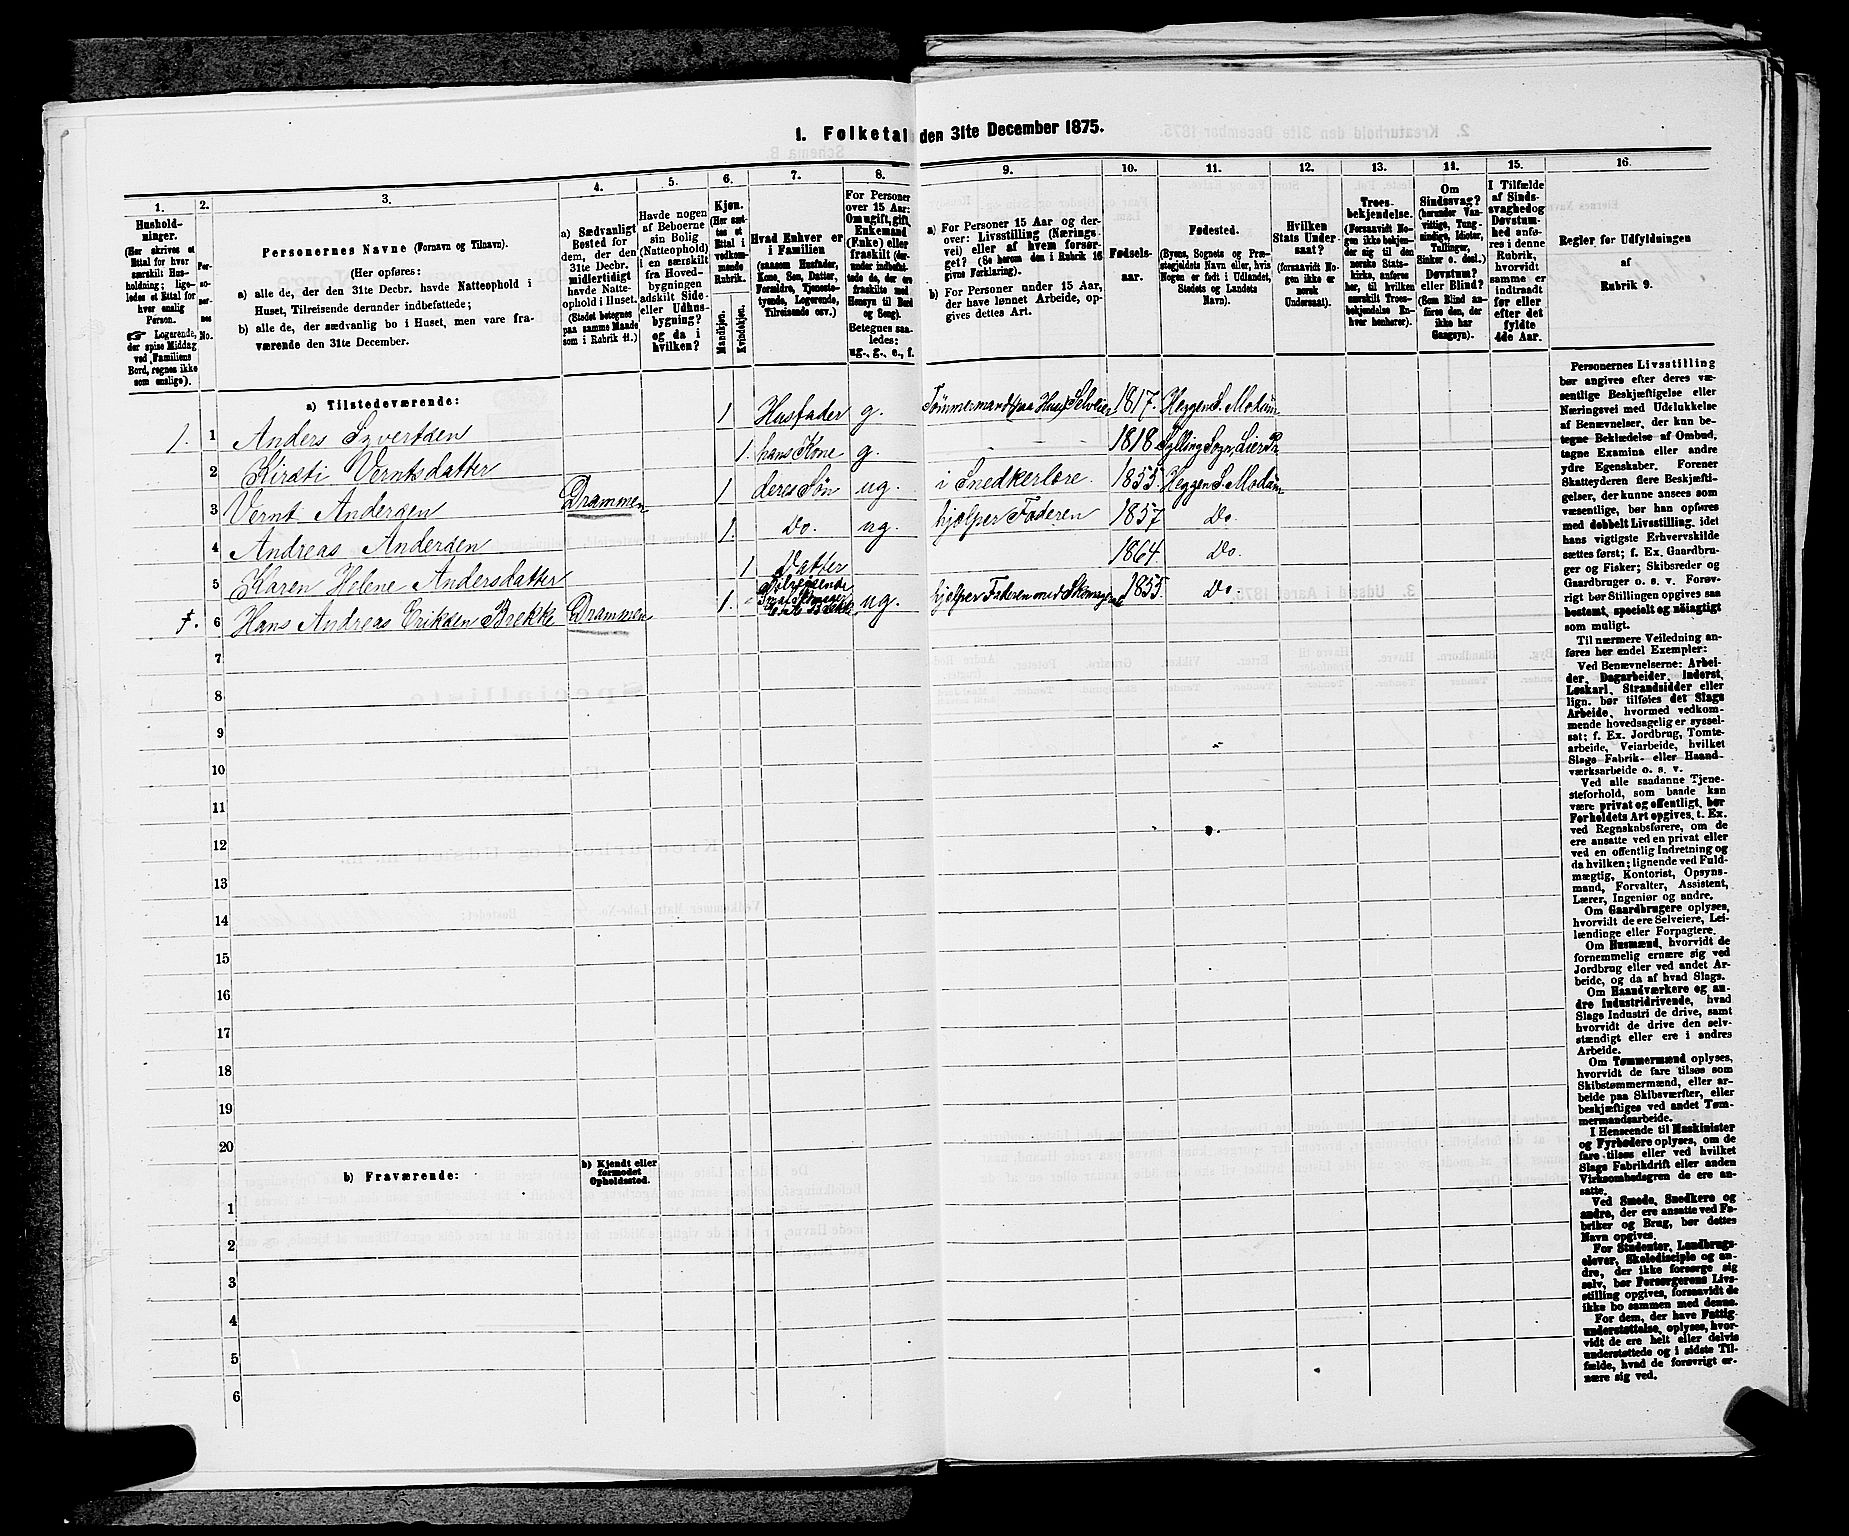 1. Folketal den 31te December 1875.
1. 2. 3. 4. 5. 6. 7. 8. 9. 10. 11. 12. 13. 14. 15. 16.
Hushold-
ninger.
(Her skrives et
Ettal for hver
særskilt Hus-
holdning; lige-
ledes et Ettal for
hver enslig
Person.
☞ Logerende,
der spise Middag
ved Familiens
Bord, regnes ikke
som enslige).
Per-
so-
ner-
nes
No.
Personernes Navne (Fornavn og Tilnavn).
(Her opføres:
a) alle de, der den 31te Decbr. havde Natteophold i
Huset, Tilreisende derunder indbefattede;
b) alle de, der sædvanlig bo i Huset, men vare fra-
værende den 31te December.
a) Sædvanligt
Bosted for
dem, der den
31te Decbr.
midlertidigt
havde Natte-
ophold i Huset.
(Stedet betegnes
paa samme Maade
som i Rubrik 11.)
Havde nogen
af Beboerne
sin Bolig
(Natteophold)
i en særskilt
fra Hoved-
bygningen
adskilt Side-
eller Udhus-
bygning?
og da i
hvilken?
Kjøn.
(Her sæt-
tes et
Ettal i
vedkom-
mende
Rubrik.
Mandkjøn.
Kvindekjøn.
Hvad Enhver er
i Familien
(saasom Husfader,
Kone, Søn, Datter,
Forældre, Tjeneste-
tyende, Logerende,
Tilreisende osv.)
For Personer
over 15 Aar:
Om ugift, gift,
Enkemand
(Enke) eller
fraskilt (der-
under indbefat-
tede de, der ere
fraskilte med
Hensyn til Bord
og Seng).
Betegnes saa-
ledes:
ug., g., e., f.
a) For Personer 15 Aar og der-
over: Livsstilling (Nærings-
vei) eller af hvem forsør-
get? (Se herom den i Rubrik 16
givne Forklaring).
b) For Personer under 15 Aar,
der have lønnet Arbeide, op-
gives dettes Art.
Fødsels-
aar.
Fødested.
(Byens, Sognets og Præ-
stegjældets Navn eller, hvis
Nogen er født i Udlandet,
Stedets og Landets
Navn).
Hvilken
Stats Under-
saat?
(forsaavidt No-
gen ikke er
norsk
Undersaat).
Troes-
bekjendelse.
(Forsaavidt No-
gen ikke bekjen-
der sig til den
norske Stats-
kirke, anføres
her, til hvilken
særskilt Troes-
bekjendelse En-
hver henhører).
Om
Sindssvag?
(herunder Van-
vittige, Tung-
sindige, Idioter,
Tullinger,
Sinker o. desl.)
Døvstum?
eller Blind?
(Som Blind an-
føres den, der
ikke har
Gangsyn).
I Tilfælde
af Sinds-
svaghed og
Døvstum-
hed anfø-
res i denne
Rubrik,
hvorvidt
samme er
indtraadt
før eller
efter det
fyldte
4de Aar.
Regler for Udfyldningen
af
Rubrik 9.
a) Tilstedeværende:
1. 1 Anders Syvertsen 1 Husfader g. Tømmermand (paa Huse) Selveier 1817. Heggen S. Modum
2 Kirsti Verntsdatter 1. hans Kone g. 1818 Sylling Sogn, Lier P.
3 Vernt Andersen Drammen 1 deres Søn ug. i Snedkerlære. 1855. Heggen S. Modum
4 Andreas Andersen 1. Do. ug. hjælper Faderen 1857 Do.
5 Karen Helene Andersdatter 1 Datter 1864 Do.
6 Hans Andreas Eriksen Brekke Drammen 1. Tilreisende ug. hjælper Faderen med 1855. Do.
7
8
9
10
11
12
13
14
15
16
17
18
19
20
b) Fraværende:
b) Kjendt eller
formodet
Opholdssted.
1
2
3
4
5
6
Personernes Livsstilling
bør angives efter deres væ-
sentlige Beskjæftigelse eller
Næringsvei med Udelukkelse
af Benævnelser, der kun be-
tegne Beklædelse af Ombud,
tagne Examina eller andre
ydre Egenskaber. Forener
Skatteyderen flere Beskjæfti-
gelser, der kunne ansees som
væsentlige, bør han opføres
med dobbelt Livsstilling, idet
hans vigtigste Erhvervskilde
sættes først; f. Ex. Gaardbru-
ger og Fisker; Skibsreder og
Gaardbruger o. s. v. Forøv-
rigt bør Stillingen opgives saa
bestemt, specielt og nøiagtigt
som muligt.
Til nærmere Veiledning an-
føres her endel Exempler:
Ved Benævnelserne: Arbei-
der, Dagarbeider, Inderst,
Løskarl, Strandsidder eller
lign. bør tilføies det Slags
Arbeide, hvormed vedkom-
mende hovedsagelig er syssel-
sat; f. Ex. Jordbrug, Tomte-
arbeide, Veiarbeide, hvilket
Slags Fabrik- eller Haand-
værksarbeide o. s. v.
Ved alle saadanne Tjene-
steforhold, som baade kan
være privat og offentligt, bør
Forholdets Art opgives, t. Ex.
ved Regnskabsførere, om de
ere ansatte ved en privat eller
ved en offentlig Indretning og
da hvilken; lignende ved Fuld-
mægtig, Kontorist, Opsyns-
mand, Forvalter, Assistent,
Lærer, Ingeniør og andre.
Om Gaardbrugere oplyses,
hvorvidt de ere Selveiere, Lei-
lændinge eller Forpagtere.
Om Husmænd, hvorvidt de
fornemmelig ernære sig ved
Jordbrug eller ved andet Ar-
beide, og da af hvad Slags.
Om Haandværkere og an-
dre Industridrivende, hvad
Slags Industri de drive, samt
hvorvidt de drive den selv-
stændigt eller ere i andres
Arbeide.
Om Tømmermænd oplyses,
hvorvidt de fare tilsøs som
Skibstømmermænd, eller ar-
beide paa Skibsværfter, eller
beskjæftiges ved andet Tøm-
mermandsarbeide.
I Henseende til Maskinister
og Fyrbødere oplyses, om de
fare tilsøs eller ved hvilket
Slags Fabrikdrift eller anden
Virksomhedsgren de ere an-
satte.
Ved Smede, Snedkere og
andre, der ere ansatte ved Fa-
briker og Brug, bør dettes
Navn opgives.
For Studenter, Landbrugs-
elever, Skoledisciple og an-
dre, der ikke forsørge sig
selv, bør Forsørgerens Livs-
stilling opgives, forsaavidt de
ikke bo sammen med denne.
For dem, der have Fattig-
understøttelse, oplyses, hvor-
vidt de ere helt eller delvis
understøttede og i sidste Til-
fælde, hvad de forøvrigt er-
nære sig ved.